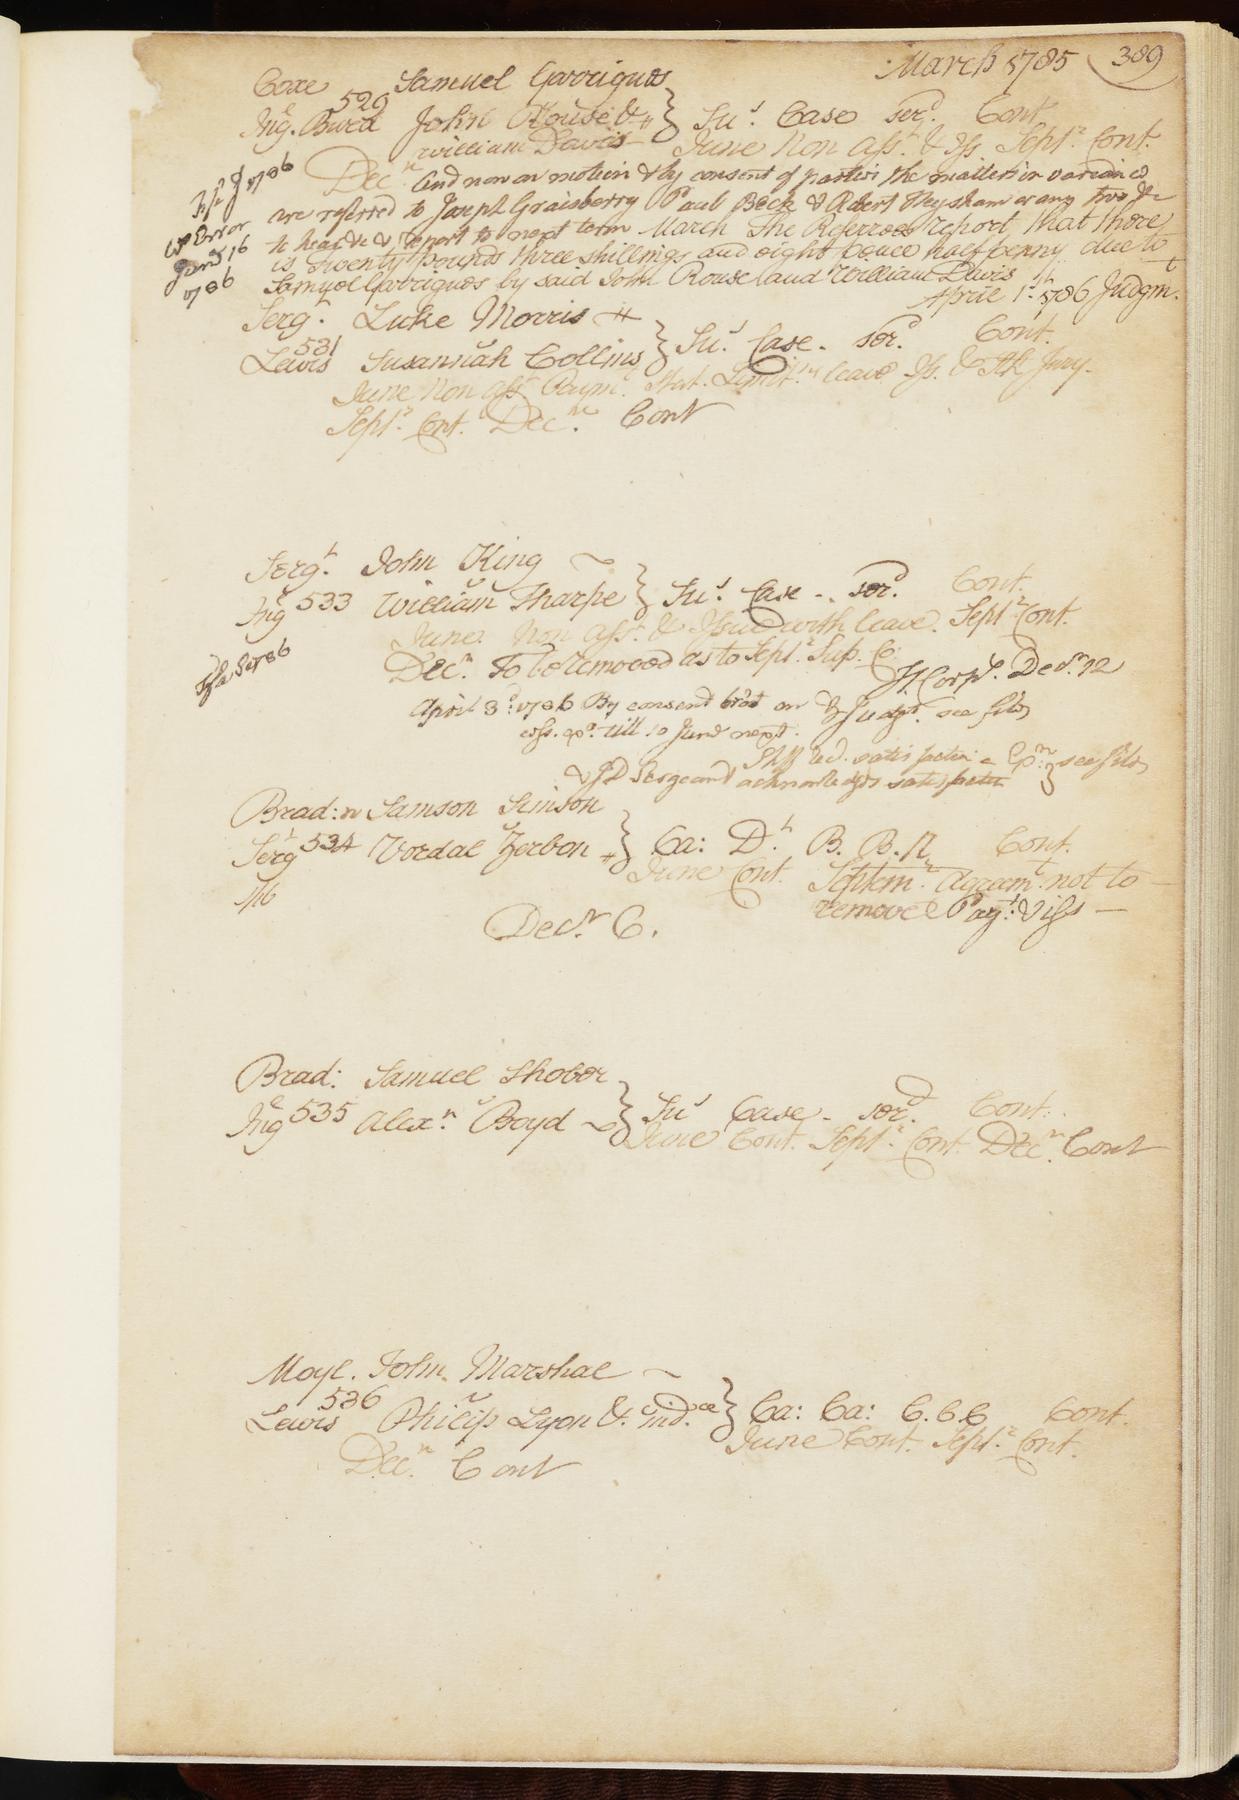 March 1785 389
Coxe Samuel Garrigues
529
Ing. John Rouse & } Sus Case serd. Cont.
William Davis June Non Asst. & Iss. Septr. Cont.
Decr. And now on motion & by consent of parties the matters in variance
are referred to Joseph Graisberry Paul Beck & Robert Heysham or any two
to hear & report to next term March The Referees report, that there
is Twenty pounds three shillings and eight pence half penny due to
Samuel Garrigues by said John Rouse and William Davis
April 1st. 1786 Judgmt.
1786
Wt Error
June 16
1786
Sergt. Luke Morris
531
Lewis Susannah Collins } Sus. Case. serd. Cont.
June Non Asst. Paymt. Stat. Limit. leave Iss. & Jury.
Septr. Cont. Decr. Cont
Sergt. John King
Ing 533 William Tharpe } Sus. Case - serd. Cont.
June. Non Asst. & Issue with leave. Septr. Cont.
Decr. To be removed as to Septr. Sup. Ct.
H. Corps. Decr. 12
April 3d. 1786 By consent & Judgt. see file
till 10 June next.
satisfaction } see file
& J D Sergeant acknowledges satisfaction
Brad: Samson Simson
Sergt 534 Vordal Zerbon } Ca: Dt. B. B. R. Cont.
June Cont. Septemr. Agreemt. not to
remove Payt. & iss
Decr. C.
Brad: Samuel Shober
Ing 535 Alexr. Boyd } Sus Case - serd. Cont.
June Cont. Septr. Cont. Decr. Cont
Moyl. John Marshal
536
Lewis Philip Lyon & Ind. } Ca: Ca: C.C.C Cont.
June Cont. Septr. Cont.
Decr. Cont